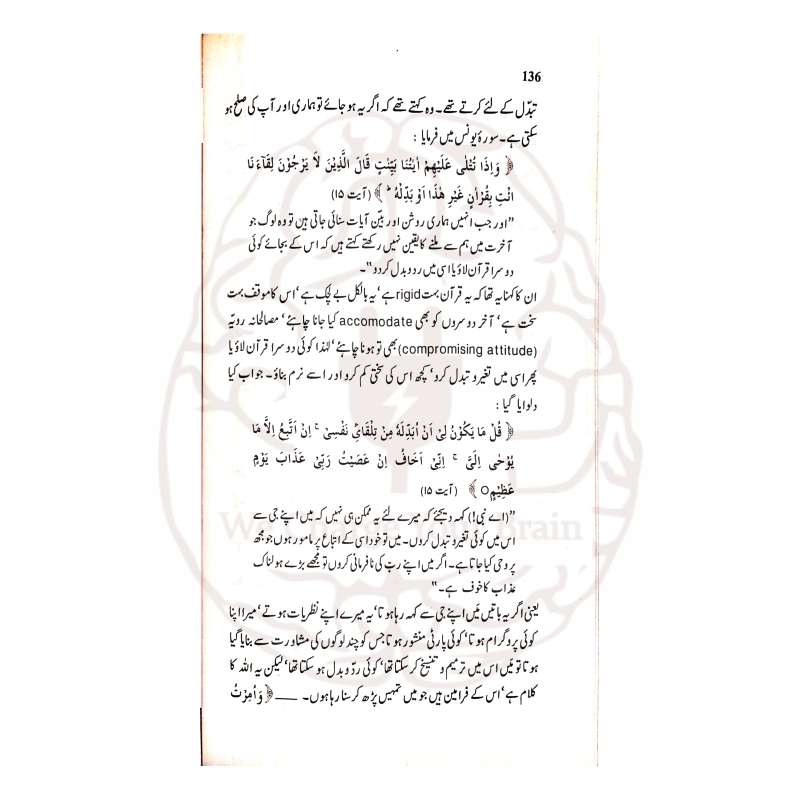 136
تبدّل کے لئے کرتے تھے۔ وہ کہتے تھے کہ اگر یہ ہو جائے تو ہماری اور آپ کی صلح ہو
سکتی ہے۔ سورۂ یونس میں فرمایا :
﴿ وَاِذَا تُتْلٰى عَلَيْهِمْ اٰيٰتُنَا بَيِّنٰتٍ قَالَ الَّذِيْنَ لَا يَرْجُوْنَ لِقَآءَنَا
ائْتِ بِقُرْاٰنٍ غَيْرِ هٰذَا اَوْ بَدِّلْهُ ۭ ﴾ (آیت ۱۵)
”اور جب انہیں ہماری روشن اور بیّن آیات سنائی جاتی ہیں تو وہ لوگ جو
آخرت میں ہم سے ملنے کا یقین نہیں رکھتے کہتے ہیں کہ اس کے بجائے کوئی
دوسرا قرآن لاؤ یا اسی میں ردوبدل کر دو“۔
ان کا کہنا یہ تھا کہ یہ قرآن بہت rigid ہے‘ یہ بالکل بے لچک ہے‘ اس کا موقف بہت
سخت ہے‘ آخر دوسروں کو بھی accomodate کیا جانا چاہئے‘ مصالحانہ رویّہ
(compromising attitude) بھی تو ہونا چاہئے‘ لہٰذا کوئی دوسرا قرآن لاؤ یا
پھر اسی میں تغیر و تبدل کرو‘ کچھ اس کی سختی کم کرو اور اسے نرم بناؤ۔ جواب کیا
دلوایا گیا :
﴿ قُلْ مَا يَكُوْنُ لِىْ اَنْ اُبَدِّلَهٗ مِنْ تِلْقَآئِ نَفْسِىْ ۚ اِنْ اَتَّبِعُ اِلَّا مَا
يُوْحٰى اِلَىَّ ۚ اِنِّىْ اَخَافُ اِنْ عَصَيْتُ رَبِّىْ عَذَابَ يَوْمٍ
عَظِيْمٍ○ ﴾ (آیت ۱۵)
”(اے نبی!) کہہ دیجئے کہ میرے لئے یہ ممکن ہی نہیں کہ میں اپنے جی سے
اس میں کوئی تغیر و تبدل کروں۔ میں تو خود اسی کے اتباع پر مامور ہوں جو مجھ
پر وحی کیا جاتا ہے۔ اگر میں اپنے ربّ کی نافرمانی کروں تو مجھے بڑے ہولناک
عذاب کا خوف ہے۔“
یعنی اگر یہ باتیں مَیں اپنے جی سے کہہ رہا ہوتا‘ یہ میرے اپنے نظریات ہوتے‘ میرا اپنا
کوئی پروگرام ہوتا‘ کوئی پارٹی منشور ہوتا جس کو چند لوگوں کی مشاورت سے بنایا گیا
ہوتا تو مَیں اس میں ترمیم و تنسیخ کر سکتا تھا‘ کوئی ردّ و بدل ہو سکتا تھا‘ لیکن یہ اللہ کا
کلام ہے‘ اس کے فرامین ہیں جو میں تمہیں پڑھ کر سنا رہا ہوں۔ ـــــ ﴿ وَاُمِرْتُ